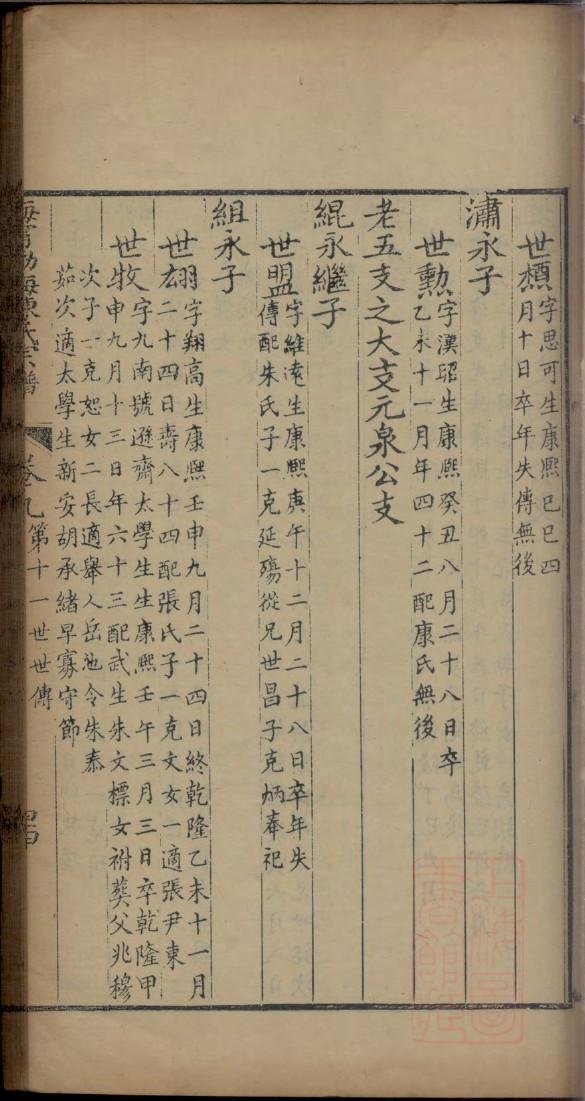 世槚字思可生康熙己巳四
月十日卒年失傳無後
潚永子
世勲字漢昭生康熙癸丑八月二十八日卒
乙未十一月年四十二配康氏無後
老五支之大支元泉公支
緄永繼子
世盟字維遠生康熙庚午十二月二十八日卒年失
傳配朱氏子一克延殤從兄世昌子克炳奉祀
組永子
世翃字翔高生康熙壬申九月二十四日終乾隆乙未十一月
二十四日壽八十四配張氏子一克文女一適張尹東
世牧字九南號遜齋太學生生康熙壬午三月三日卒乾隆甲
申九月十三日年六十三配武生朱文標女祔葬父兆穆
次子一克恕女二長適舉人岳池令朱泰
茹次適太學生新安胡承緒早寡守節
海寧渤海陳氏宗譜
卷九第十一世世傳